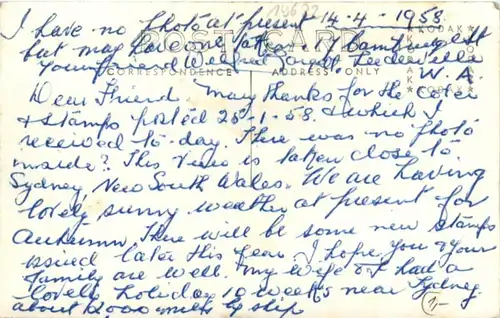 I have no Photo at present 14-4-1958.
but may have one taken 17
your friend Leederville
W. A.
POST CARD
CORRESPONDENCE ADDRESS ONLY
KODAK
Dear Friend Many thanks for the cover
& stamps posted 25-1-58 & which I
received to-day. There was no Photo
inside? This View is taken close to
Sydney, New South Wales. We are having
lovely sunny weather at present for
Autumn. There will be some new stamps
issued later this year. I hope you & your
family are well. My wife & I had a
lovely holiday 10 weeks near Sydney.
about 12000 miles by ship
1-